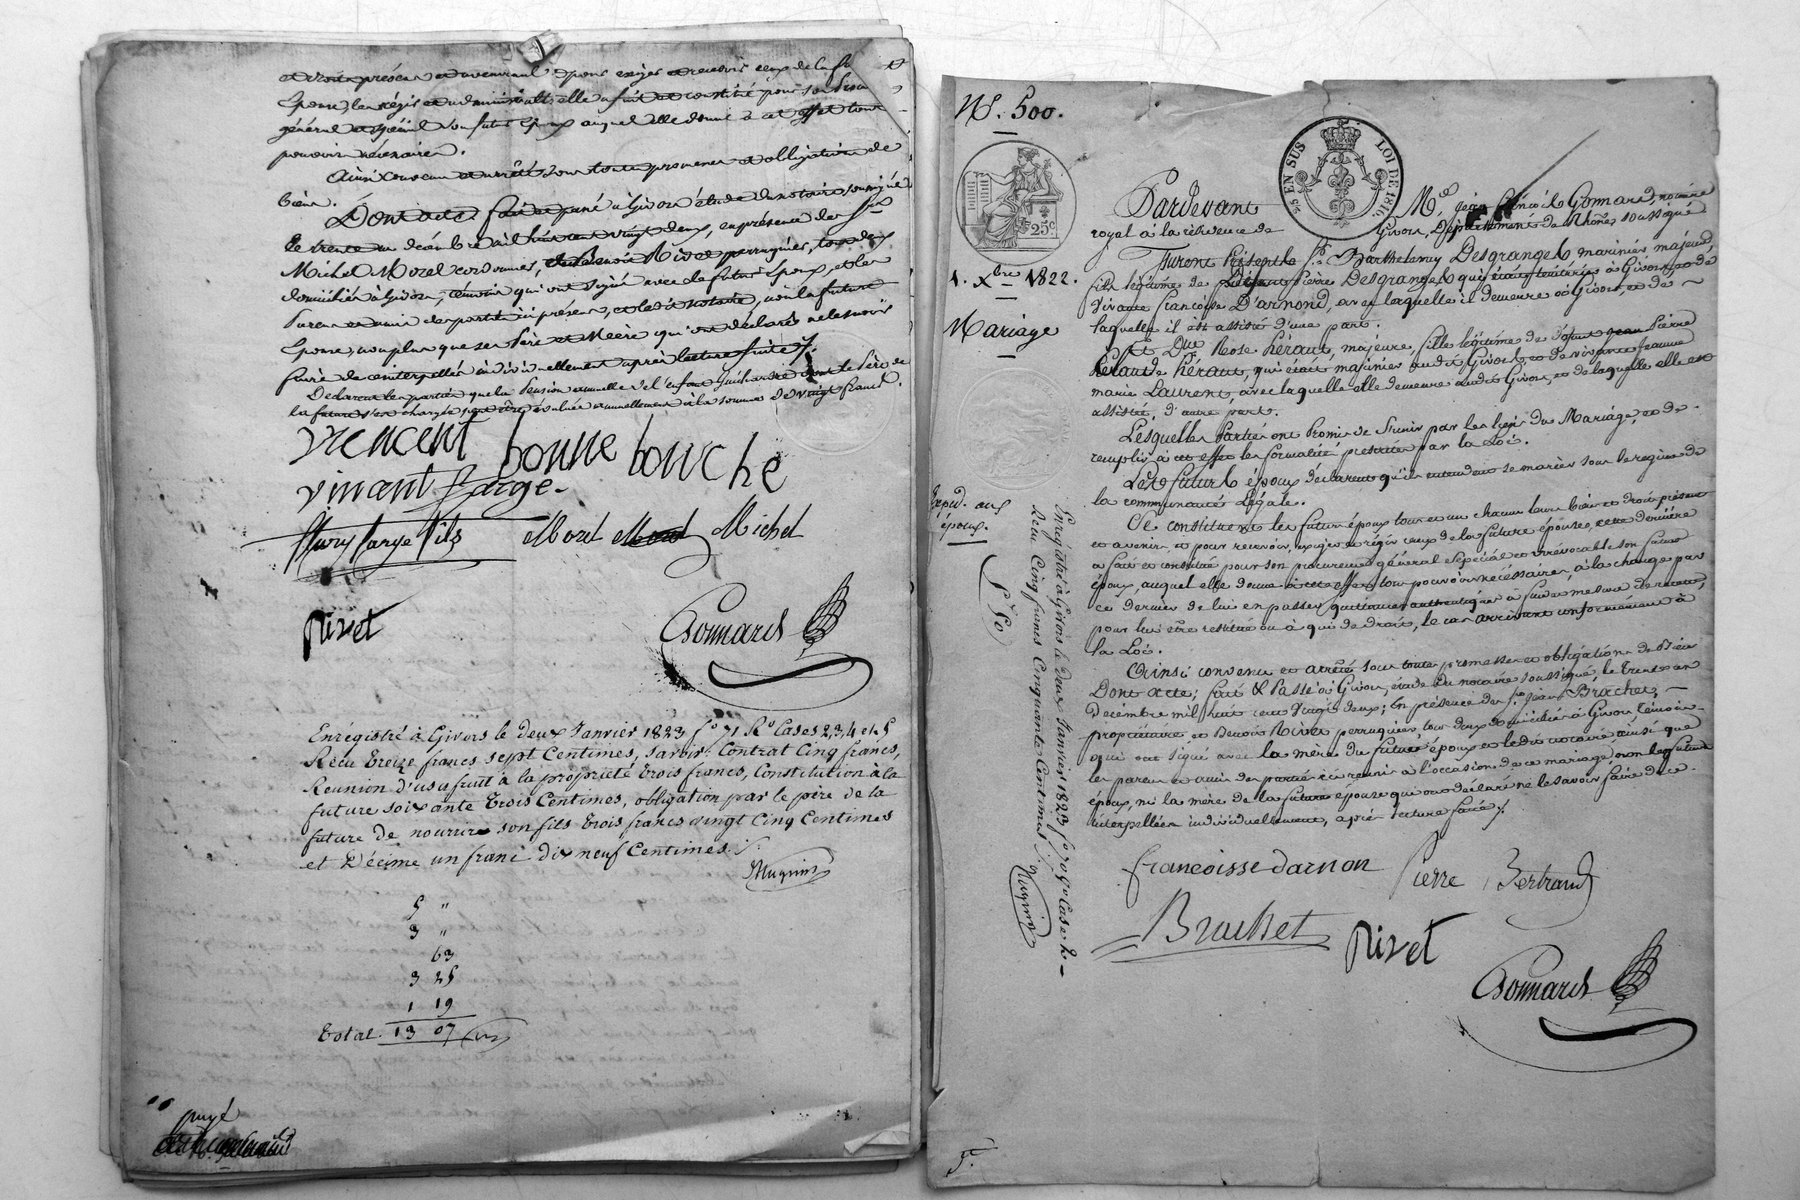 et droits présens et avenir and pour exiger et recevoir ceux de la f
Epouse, les régir et administrer, elle a fait et constitué pour son
général et spécial son futur Epoux auquel elle donne à cet effet tout
pouvoir nécessaire.
Ainsi convenu et arrêté sous toutes promesses et obligations de
biens.
Dont acte fait et passé à Givors étude du notaire soussigné
le trente un décembre mil huit cent vingt deux, en présence des Srs
Michel Morel cordonnier, Rivet perruquier, tous deux
domiciliés à Givors, témoins qui ont signé avec le futur Epoux, et les
Parens et amis des parties ici présens, et le dit notaire, non la future
Epouse, non plus que ses Père et Mère qui ont déclaré ne le savoir
faire de ce interpellés individuellement après lecture faite /.
Déclarent les parties que la Pension annuelle de l'enfant dont le Père de
la future s'est chargé peut être évaluée annuellement à la somme de vingt francs.
vrencent bonne bouche
vinant Large
Large fils Morel Morel Michel
Rivet
Gonnard
Enrégistré à Givors le deux Janvier 1823 fo 71 Ro Cases 2,3,4 et 5
Recu treize francs sept Centimes, savoir: Contrat Cinq francs,
Reunion d'usufruit à la propriété trois francs, Constitution à la
future soixante trois Centimes, obligation par le père de la
future de nourrir son fils trois francs vingt Cinq Centimes
et Décime un franc dix neuf Centimes /.
Mugnier
5 "
3 "
63
3 25
1 19
Total. 13 07
payé
No. 500.
25c.
1. Xbre 1822.
Mariage
Exped. aux
époux.
Enregistré à Givors le deux Janvier 1823 fo 70 Vo Case 2.
Recu Cinq francs Cinquante Centimes /.
Mugnier
EN SUS LOI DE 1816
Pardevant Me. Jean Gonnard, notaire
royal à la résidence de Givors, Département du Rhône soussigné
Furent Présents Sr. Barthelemy Desgranges marinier majeur,
fils légitime de Pierre Desgranges qui étoit à Givors, et de
vivante Françoise D'arnond, avec laquelle il demeure à Givors, et de
laquelle il est assisté d'une part.
Et Dlle Rose Héraut, majeure, fille légitime de défunt Jean Pierre
Héraut, qui était marinier audit Givors et de vivante Jeanne
marie Laurent, avec laquelle elle demeure audit Givors, et de laquelle elle est
assistée, d'autre part.
Lesquelles Parties ont Promis de S'unir par les liens du Mariage, et de
remplir à cet effet les formalités prescrites par la Loi.
Les futurs époux déclarent qu'ils entendent se marier sous le régime de
la communauté Légale.
Se constituent les futurs époux tous et un chacun leurs biens et droits présent
et avenir, et pour recevoir, exiger et régir ceux de la future épouse, cette dernière
a fait et constitué pour son procureur général spécial et irrévocable son futur
époux, auquel elle donne à cet effet tous pouvoirs nécessaires, à la charge par
ce dernier de lui en passer quittances authentiques à fur et mesure de recette,
pour lui être restitué ou à qui de droit, le cas arrivant conformément à
la Loi.
Ainsi convenu et arrêté sous toutes promesses et obligations de biens
Dont acte; fait & Passé à Givors, étude du notaire soussigné, le trente un
Décembre mil huit cent vingt deux; En présence des Srs Jean Brachet,
propriétaire et Benoit Rivet perruquier, tous deux domiciliés à Givors témoins
qui ont signé avec la mère du futur époux et ledit notaire ainsi que
les parens et amis des parties ici réunis à l'occasion de ce mariage, non les futurs
époux, ni la mère de la future épouse qui ont déclaré ne le savoir faire de ce
interpellés individuellement, après lecture faite /.
francoisse darnon Pierre Bertrand
Brachet Rivet
Gonnard